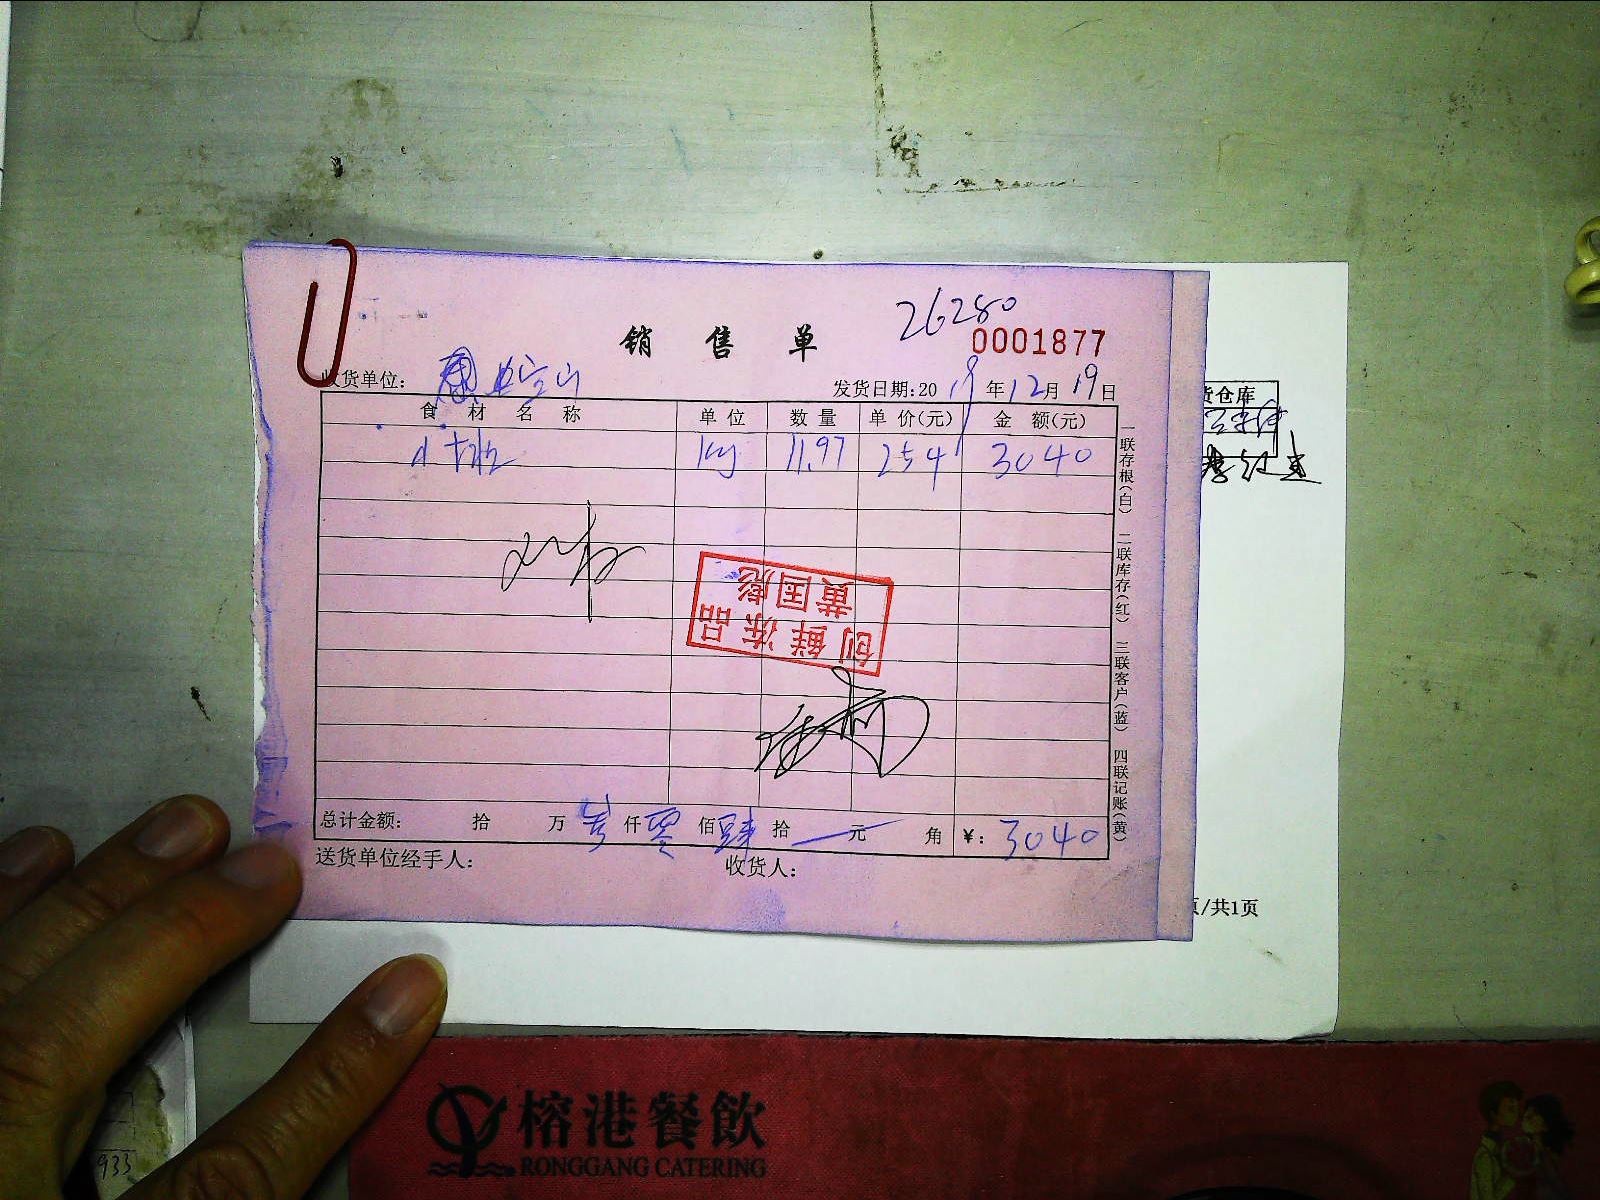 26280
销 售 单
0001877
收货单位:
发货日期:2019年12月19日
食 材 名 称 单 位 数 量 单 价(元) 金 额(元)
Kg 11.97 254 3040
创鲜冻品
黄国彪
总计金额: 拾 万 叁 仟 零 佰 肆 拾 元 角 ¥: 3040
送货单位经手人: 收货人:
一联存根(白) 二联库存(红) 三联客户(蓝) 四联记账(黄)
货仓库
页/共1页
933
榕港餐飲
RONGGANG CATERING